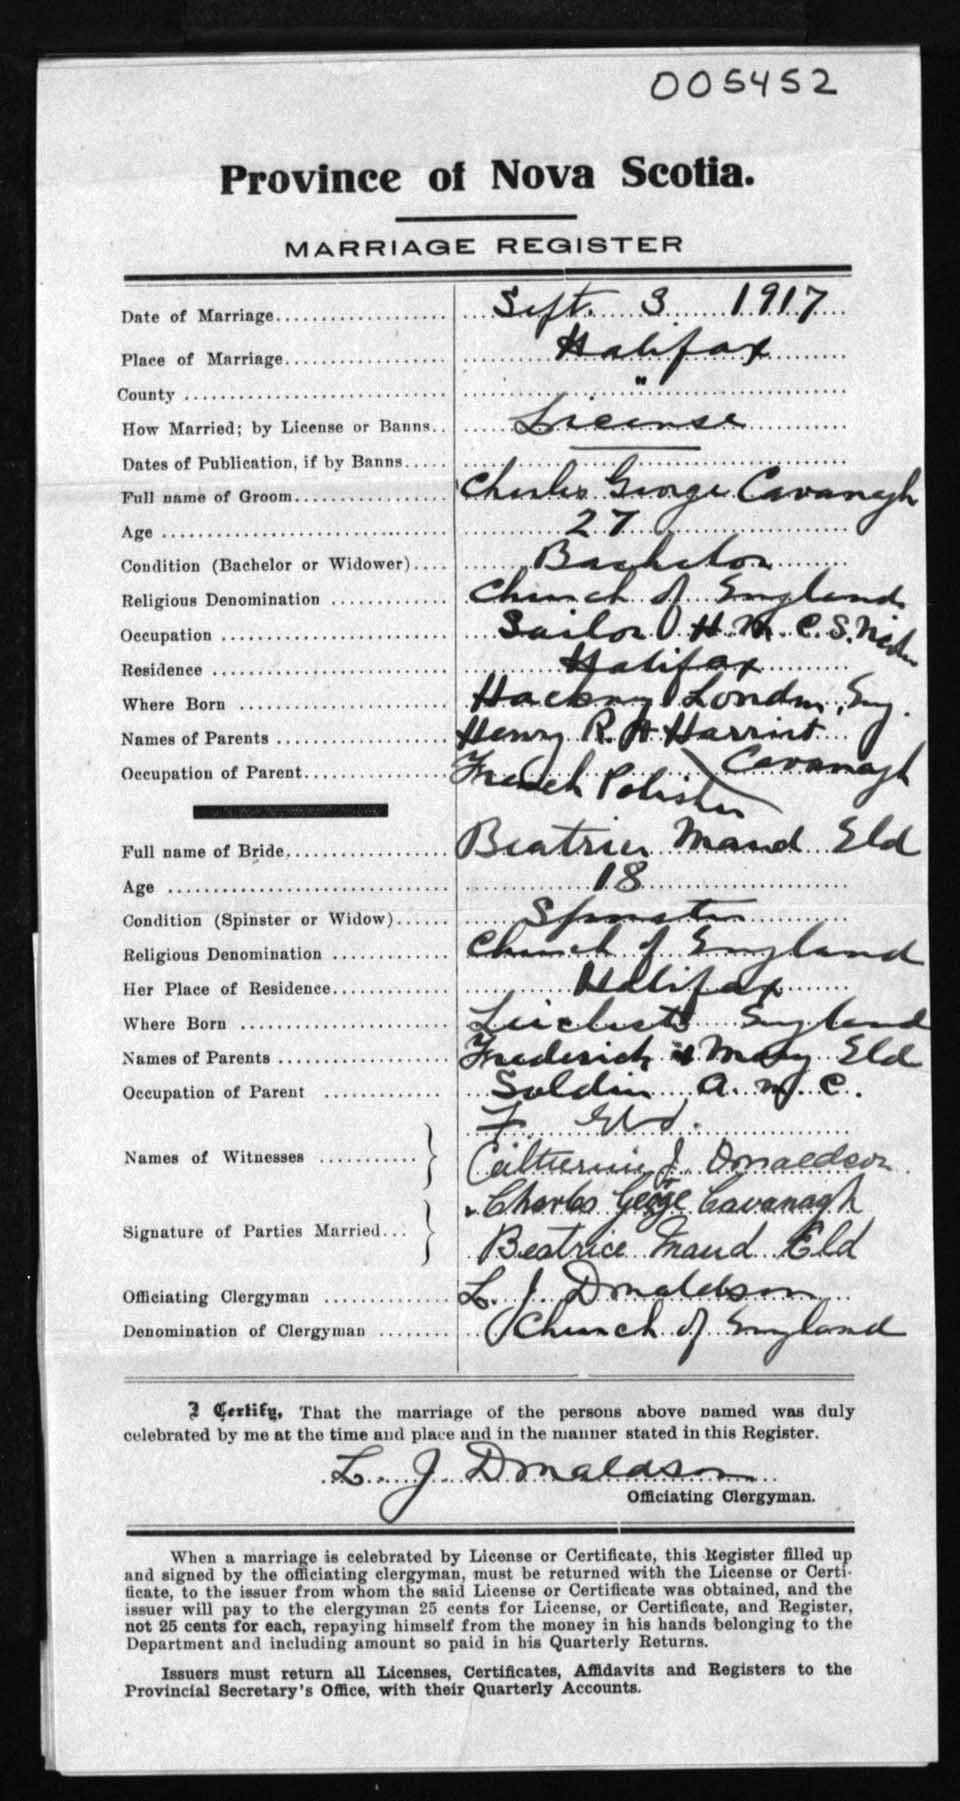 005452
Province of Nova Scotia.
MARRIAGE REGISTER
Date of Marriage Sept. 3 1917
Place of Marriage Halifax
County "
How Married; by License or Banns License
Dates of Publication, if by Banns
Full name of Groom Charles George Cavanagh
Age 27
Condition (Bachelor or Widower) Bachelor
Religious Denomination Church of England
Occupation Sailor H. M. C. S.
Residence Halifax
Where Born Hackney London, Eng.
Names of Parents Henry R. H Harriet Cavanagh
Occupation of Parent French Polisher
Full name of Bride Beatrice Maud Eld
Age 18
Condition (Spinster or Widow) Spinster
Religious Denomination Church of England
Her Place of Residence Halifax
Where Born England
Names of Parents Frederick & Mary Eld
Occupation of Parent Soldier A. M. C.
F. Eld.
Names of Witnesses
Catherine J. Donaldson
Charles George Cavanagh
Signature of Parties Married
Beatrice Maud Eld
Officiating Clergyman L. J. Donaldson
Denomination of Clergyman Church of England
I Certify, That the marriage of the persons above named was duly
celebrated by me at the time and place and in the manner stated in this Register.
L. J. Donaldson
Officiating Clergyman.
When a marriage is celebrated by License or Certificate, this Register filled up
and signed by the officiating clergyman, must be returned with the License or Certi-
ficate, to the issuer from whom the said License or Certificate was obtained, and the
issuer will pay to the clergyman 25 cents for License, or Certificate, and Register,
not 25 cents for each, repaying himself from the money in his hands belonging to the
Department and including amount so paid in his Quarterly Returns.
Issuers must return all Licenses, Certificates, Affidavits and Registers to the
Provincial Secretary's Office, with their Quarterly Accounts.